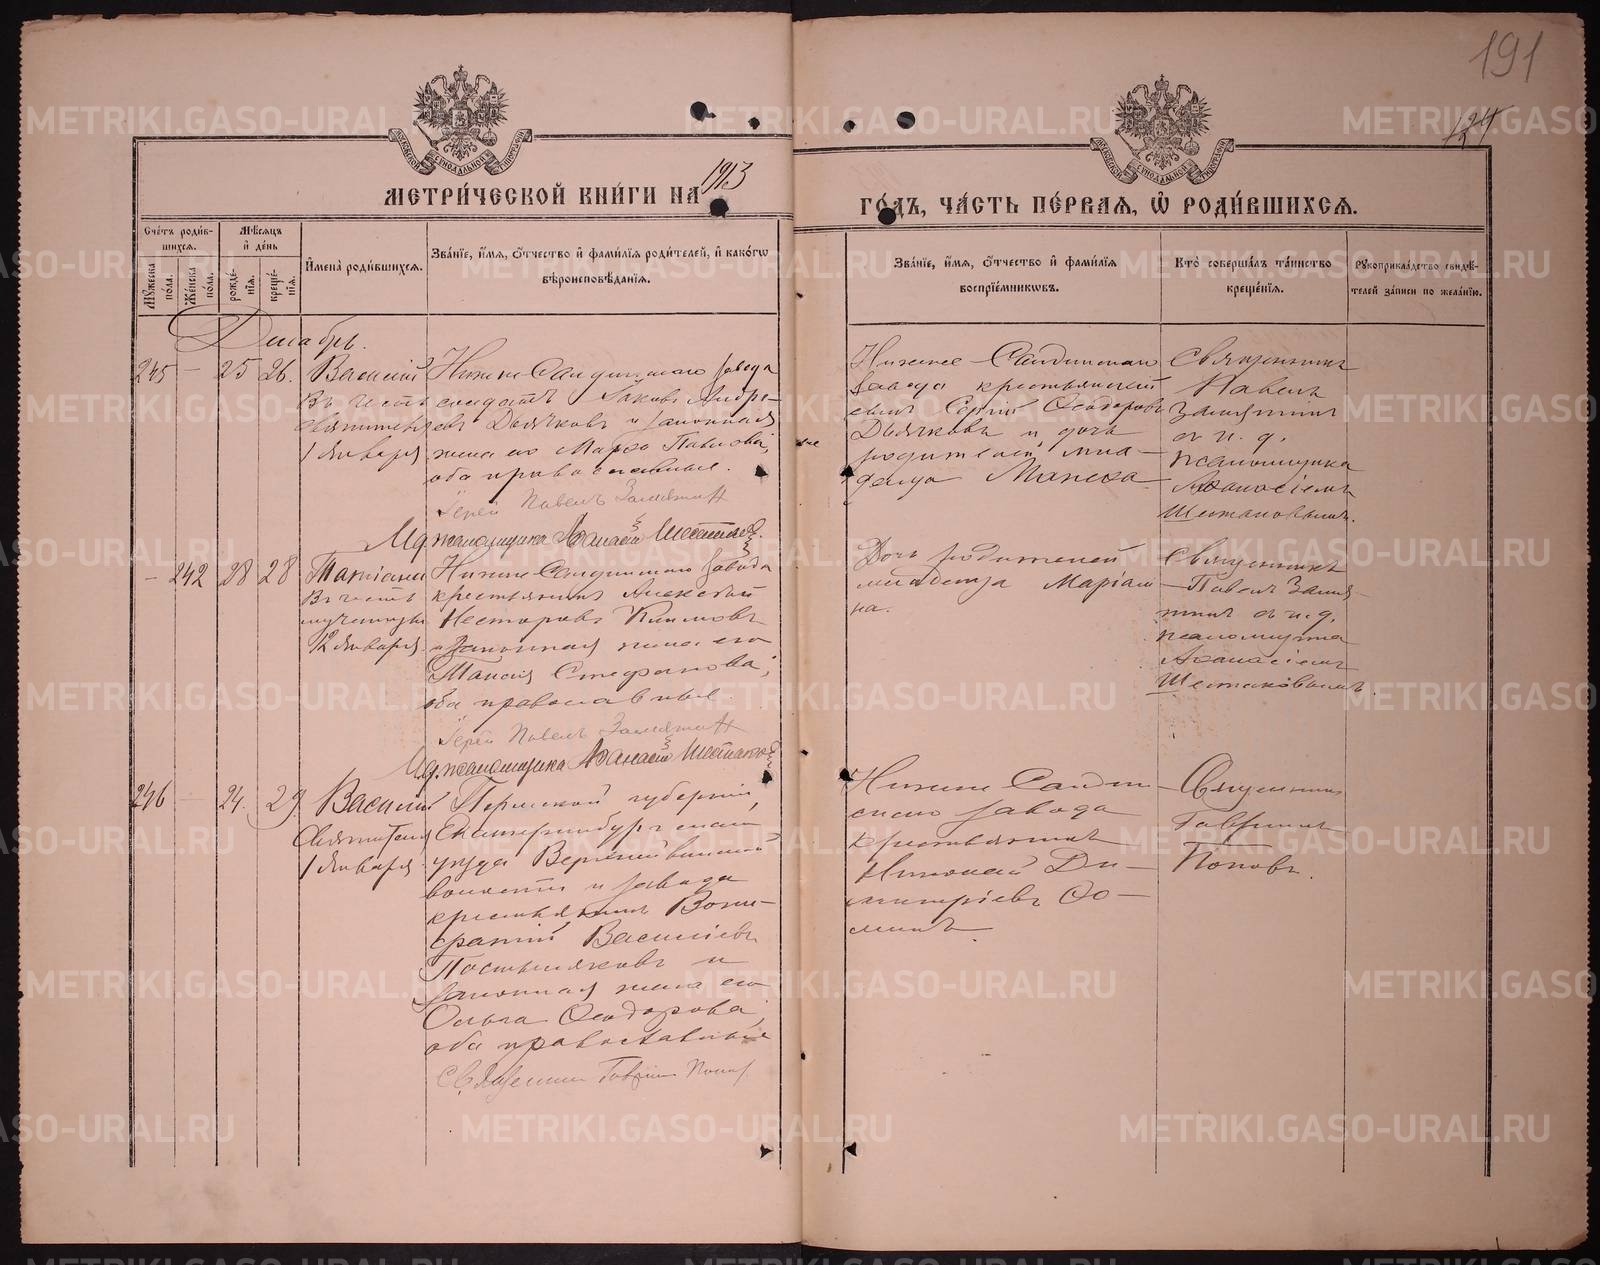 191
124
МОСКОВСКОЙ СѴНОДАЛЬНОЙ ТИПОГРАФІИ
МОСКОВСКОЙ СѴНОДАЛЬНОЙ ТИПОГРАФІИ
МЕТРИ́ЧЕСКОЙ КНИ́ГИ НА 1913
ГО́ДЪ, ЧА́СТЬ ПЕ́РВАѦ, Ѡ҆ РОДИ́ВШИХСѦ.
Сче́тъ роди́вшихсѧ.
Мꙋ́жеска по́ла.
Же́нска по́ла.
Мѣ́сѧцъ и҆ де́нь
рожде́нїѧ.
креще́нїѧ.
И҆мена̀ роди́вшихсѧ.
Зва́нїе, и҆́мѧ, ѻ҆́тчество и҆ фами́лїѧ роди́телей, и҆ како́гѡ
вѣроисповѣ́данїѧ.
Зва́нїе, и҆́мѧ, ѻ҆́тчество и҆ фами́лїѧ
воспрїе́мникѡвъ.
Кто̀ соверша́лъ та́инство
креще́нїѧ.
Рꙋкоприкла́дство свидѣ́-
телей за́писи по жела́нїю.
Декабрь.
245 — 25 26. Василій
Въ честь
святителя
1 Января
Нижне-Салдинскаго завода
солдатъ Іаковъ Андре-
евъ Дьячковъ и законная
жена его Марѳа Павлова,
оба православные.
Іерей Павелъ Замятинъ
И.д. псаломщика Аѳанасій Шестаковъ.
Нижне-Салдинскаго
завода крестьянскій
сынъ Сергій Ѳеодоровъ
Дьячковъ и дочь
родителей мла-
денца
Священникъ
Павелъ
Замятинъ
съ и. д.
псаломщика
Аѳанасіемъ
Шестаковымъ.
— 242 28 28 Татіана
Въ честь
мученицы
12 Января.
Нижне-Салдинскаго завода
крестьянинъ Алексѣй
Несторовъ
и законная жена его
Таисія Стефанова,
оба православные.
Іерей Павелъ Замятинъ
И.д. псаломщика Аѳанасій Шестаковъ
Дочь родителей
младенца Маріам-
на.
Священникъ
Павелъ Замя-
тинъ съ и. д.
псаломщика
Аѳанасіемъ
Шестаковымъ.
246 — 24. 29. Василій
Святителя
1 Января
Пермской губерніи,
Екатеринбургскаго
уѣзда Верхнейвинской
волости и завода
крестьянинъ Вони-
фатій Васильевъ
Постыляковъ и
законная жена его
Ольга Ѳеодорова,
оба православные
Священникъ Гавріилъ Поповъ
Нижне-Салдин-
скаго завода
крестьянинъ
Николай Ди-
митріевъ Ѳо-
минъ.
Священникъ
Гавріилъ
Поповъ.
METRIKI.GASO-URAL.RU